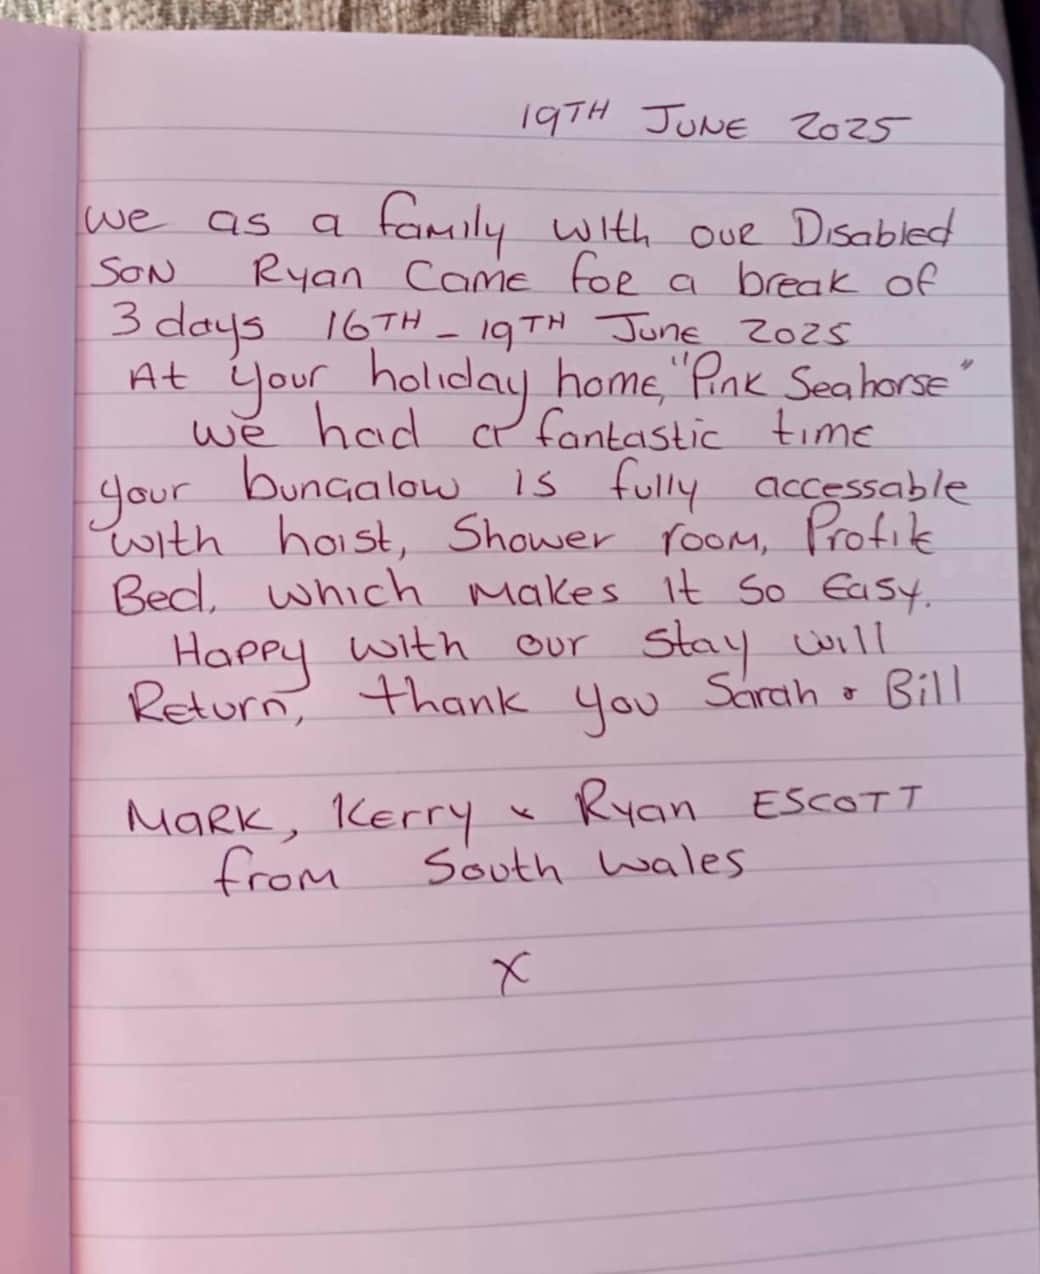 19TH JUNE 2025
we as a family with our Disabled
SON Ryan Came for a break of
3 days 16TH - 19TH June 2025
At your holiday home, "Pink Seahorse"
we had a fantastic time
your bungalow is fully accessable
with hoist, Shower room, Profik
Bed, which makes it so Easy.
Happy with our stay will
Return, thank you Sarah & Bill
Mark, Kerry & Ryan ESCOTT
from South Wales
X